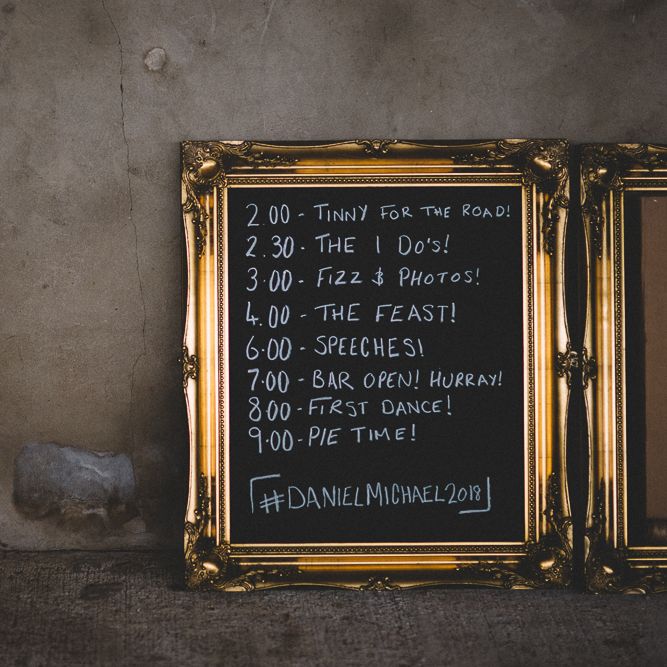 2.00 - TINNY FOR THE ROAD!
2.30 - THE I DO'S!
3.00 - FIZZ & PHOTOS!
4.00 - THE FEAST!
6.00 - SPEECHES!
7.00 - BAR OPEN! HURRAY!
8.00 - FIRST DANCE!
9.00 - PIE TIME!
#DANIELMICHAEL2018